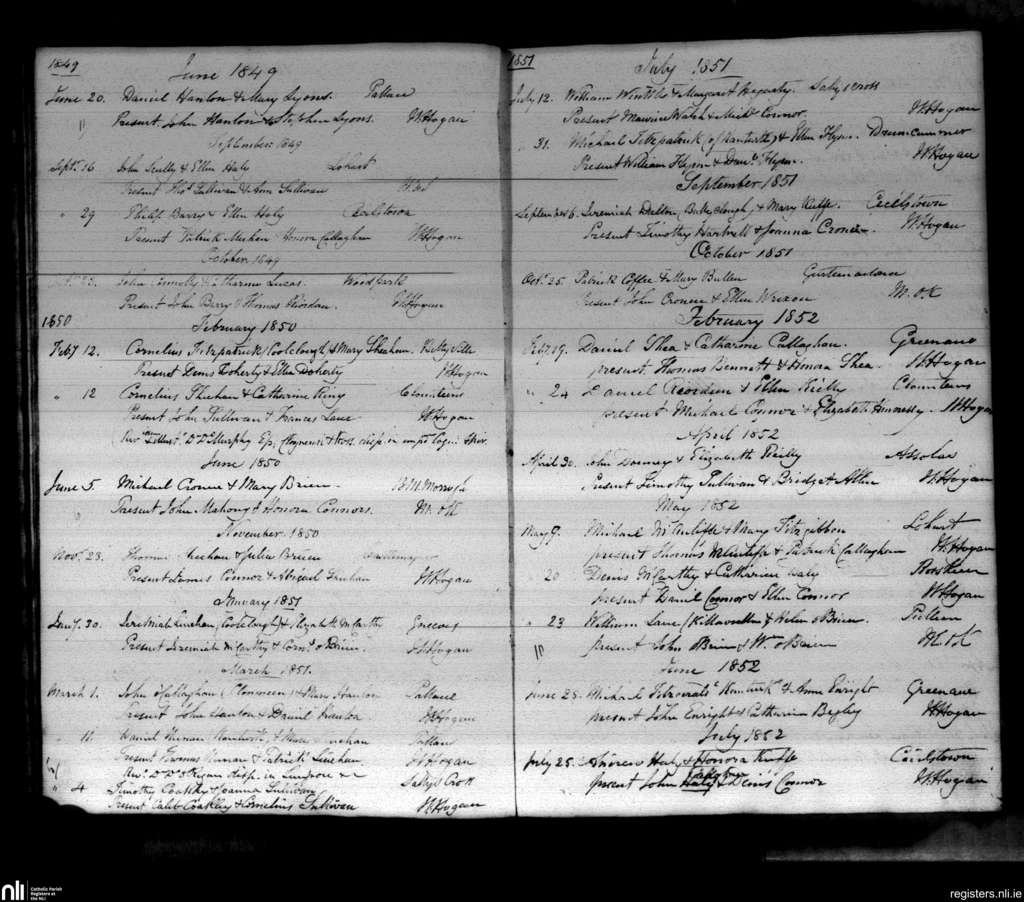 1849
June 1849
June 20. Daniel Hanlon & Mary Lyons. Pallas
" Present John Hanlon & Stephen Lyons. W. Hogan
September 1849
Sept. 16 John Scully & Ellen Haly Lohort
Present Thos. Sullivan & Ann Sullivan
" 29 Philip Barry & Ellen Haly Cecilstown
Present Patrick Meehan Honora Callaghan W. Hogan
October 1849
John & Catharine Lucas. Woodpark
Present John Barry & Thomas Riordan. W. Hogan
1850
February 1850
Feby 12. Cornelius Fitzpatrick (Coolclough) & Mary Sheehan. Bettyville
Present Denis Doherty & Ellen Doherty W. Hogan
" 12 Cornelius Sheehan & Catharine King Clounteens
Present John Sullivan & Frances Lane W. Hogan
D. Dr. Murphy Ep. disp. in
June 1850
June 5. Michael Cronin & Mary Brien.
Present John Mahony & Honora Connors. M. O'K
November 1850
Nov. 23. Thomas Sheehan & Julia Brien
Present James Connor & Abigail W. Hogan
January 1851
Jany. 30. Jeremiah Linehan & Elizabeth McCarthy Greeves
Present Jeremiah McCarthy & Corns. O'Brien. W. Hogan
March 1851.
March 1. John O'Callaghan (Clonmeen) & Mary Hanlon Pallas
Present John Hanlon & Daniel Hanlon W. Hogan
" 11 Daniel & Linehan Pallas
Present Thomas & Patrick Linehan W. Hogan
disp. in
" 4 Timothy Coakley & Joanna Sullivan Sally's Cross
Present Caleb Coakley & Cornelius Sullivan W. Hogan
1851
July 1851
July 12. William & Margaret Hegarty. Sally's Cross
Present Maurice Walsh & Michl. Connor. W. Hogan
" 31. Michael Fitzpatrick (of Kanturk) & Ellen Flynn. Drumcummer
Present William Flynn & Danl. Flynn. W. Hogan
September 1851
September 6. Jeremiah Dalton & Mary Keeffe. Cecilstown
Present Timothy Hartnett & Joanna Cronin. W. Hogan
October 1851
Oct. 25. Patrick Coffee & Mary Bullen
Present John Cronin & Ellen Wrixon M. O'K
February 1852
Feby. 19. Daniel Shea & Catharine Callaghan. Greenane
present. Thomas Bennett & Honora Shea. W. Hogan
" 24 Daniel Reordan & Ellen Clounteens
present Michael Connor & Elizabeth Hennessy. W. Hogan
April 1852
April 30. John Downey & Elizabeth Reilly Assolas
Present Timothy Sullivan & Bridget Allen W. Hogan
May 1852
May 9. Michael McAuliffe & Mary Fitzgibbon Lohort
present Thomas McAuliffe & Patrick Callaghan W. Hogan
20 Denis McCarthy & Catharine Daly Roskeen
present Daniel Connor & Ellen Connor W. Hogan
" 23 William Lane (Killavullen) & Helen O'Brien.
" present John OBrien & W. OBrien M. O'K
June 1852
June 25. Michael Fitzgerald Kanturk & Anne Enright Greenane
present John Enright & Catharine Begley W. Hogan
July 1852
July 25. Andrew Haly & Honora Keeffe Cecilstown
present John Haly & Denis Connor W. Hogan
nli
Catholic Parish
Registers at
the NLI
registers.nli.ie